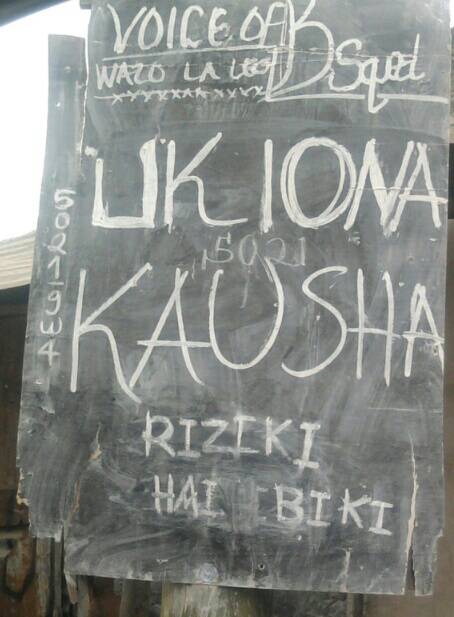 VOICE OF B Squad
WAZO LA LEO
UKIONA
5021
KAUSHA
RIZIKI
HAI BIKI